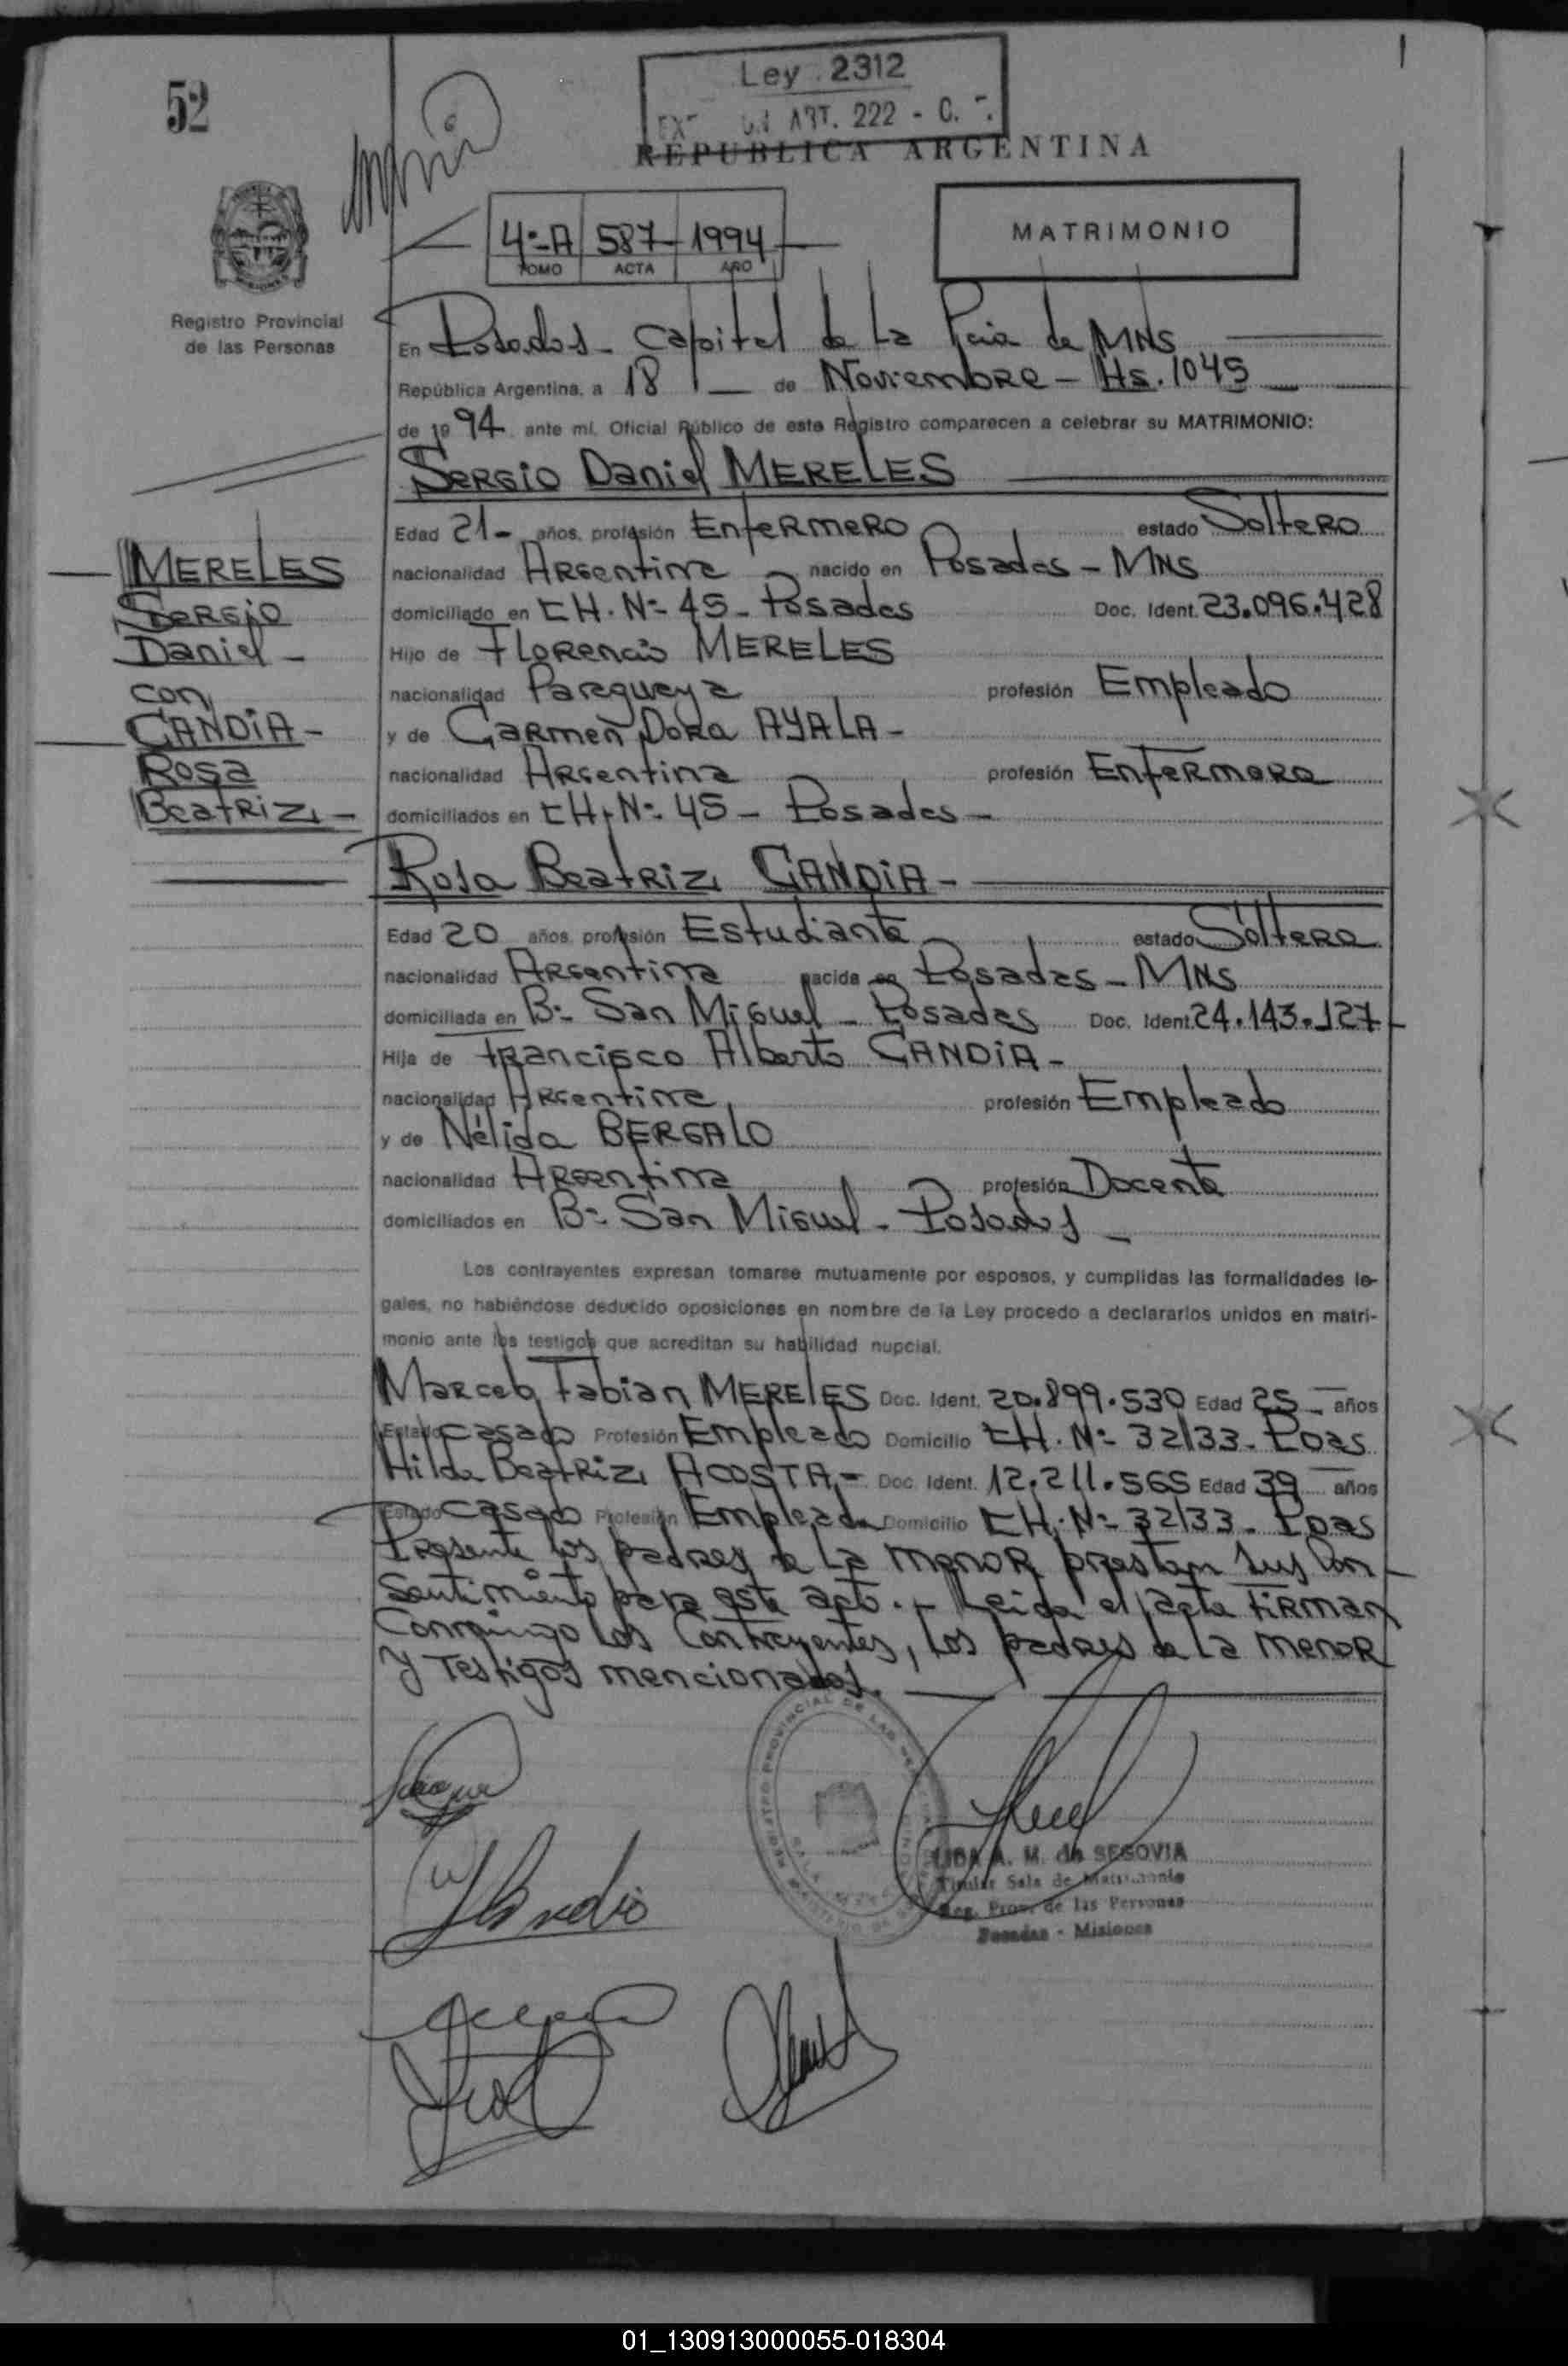 52
Ley 2312
ART. 222 - C.
REPUBLICA ARGENTINA
4º-A 587 1994
TOMO ACTA AÑO
MATRIMONIO
Registro Provincial
de las Personas
En Posadas - Capital de La Pcia de MNS
República Argentina, a 18 de Noviembre - Hs. 1045
de 1994 ante mí, Oficial Público de este Registro comparecen a celebrar su MATRIMONIO:
Sergio Daniel MERELES
Edad 21 - años, profesión Enfermero estado Soltero
nacionalidad Argentina nacido en Posadas - MNS
domiciliado en CH. Nº 45 - Posadas Doc. Ident. 23.096.428
Hijo de Florencio MERELES
nacionalidad Paraguaya profesión Empleado
y de Carmen Dora AYALA -
nacionalidad Argentina profesión Enfermera
domiciliados en CH. Nº 45 - Posadas -
MERELES
Sergio
Daniel -
con
CANDIA -
Rosa
Beatriz -
Rosa Beatriz CANDIA -
Edad 20 años, profesión Estudiante estado Soltera
nacionalidad Argentina nacida en Posadas - MNS
domiciliada en Bº San Miguel - Posadas Doc. Ident. 24.143.127
Hija de Francisco Alberto CANDIA -
nacionalidad Argentina profesión Empleado
y de Nélida BERGALO
nacionalidad Argentina profesión Docente
domiciliados en Bº San Miguel - Posadas -
Los contrayentes expresan tomarse mutuamente por esposos, y cumplidas las formalidades le-
gales, no habiéndose deducido oposiciones en nombre de la Ley procedo a declararlos unidos en matri-
monio ante los testigos que acreditan su habilidad nupcial.
Marcelo Fabian MERELES Doc. Ident. 20.899.530 Edad 25 - años
Estado casado Profesión Empleado Domicilio CH. Nº 32/33 - Pdas
Hilda Beatriz ACOSTA - Doc. Ident. 12.211.565 Edad 39 años
Estado casado Profesión Empleada Domicilio CH. Nº 32/33 - Pdas
Presente los padres de La menor prestan sus Con-
sentimiento para este acto. - Leida el acta Firman
Conmigo Los Contrayentes, Los padres de La menor
y Testigos mencionados.
REGISTRO PROVINCIAL DE LAS
LIDA A. M. de SEGOVIA
Titular Sala de Matrimonio
Reg. Prov. de las Personas
Posadas - Misiones
01_130913000055-018304